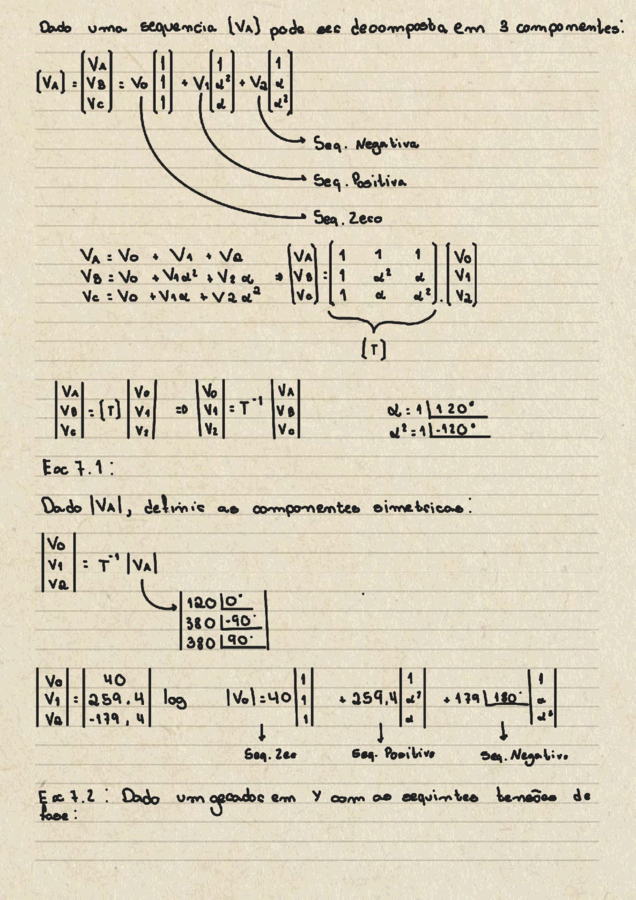 Dado uma sequencia [VA] pode ser decomposta em 3 componentes:
[VA] = [VA VB Vc] = V0 [1 1 1] + V1 [1 α² α] + V2 [1 α α²]
Seq. Negativa
Seq. Positiva
Seq. Zero
VA = V0 + V1 + V2
VB = V0 + V1α² + V2 α ⇒ [VA VB Vc] = [1 1 1; 1 α² α; 1 α α²] . [V0 V1 V2]
Vc = V0 + V1α + V2 α²
[T]
|VA VB Vc| = [T] |V0 V1 V2| ⇒ |V0 V1 V2| = T⁻¹ |VA VB Vc|
α = 1|120°
α² = 1|-120°
Exc 7.1:
Dado |VA|, definir as componentes simetricas:
|V0 V1 V2| = T⁻¹ |VA|
120|0°
380|-90°
380|90°
|V0 V1 V2| = |40 259,4 -179,4| log |V0| = 40 |1 1 1| + 259,4 |1 α² α| + 179|180° |1 α α²|
Seq. Zero Seq. Positiva Seq. Negativa
Exc 7.2: Dado um gerador em Y com as seguintes tensões de
fase: